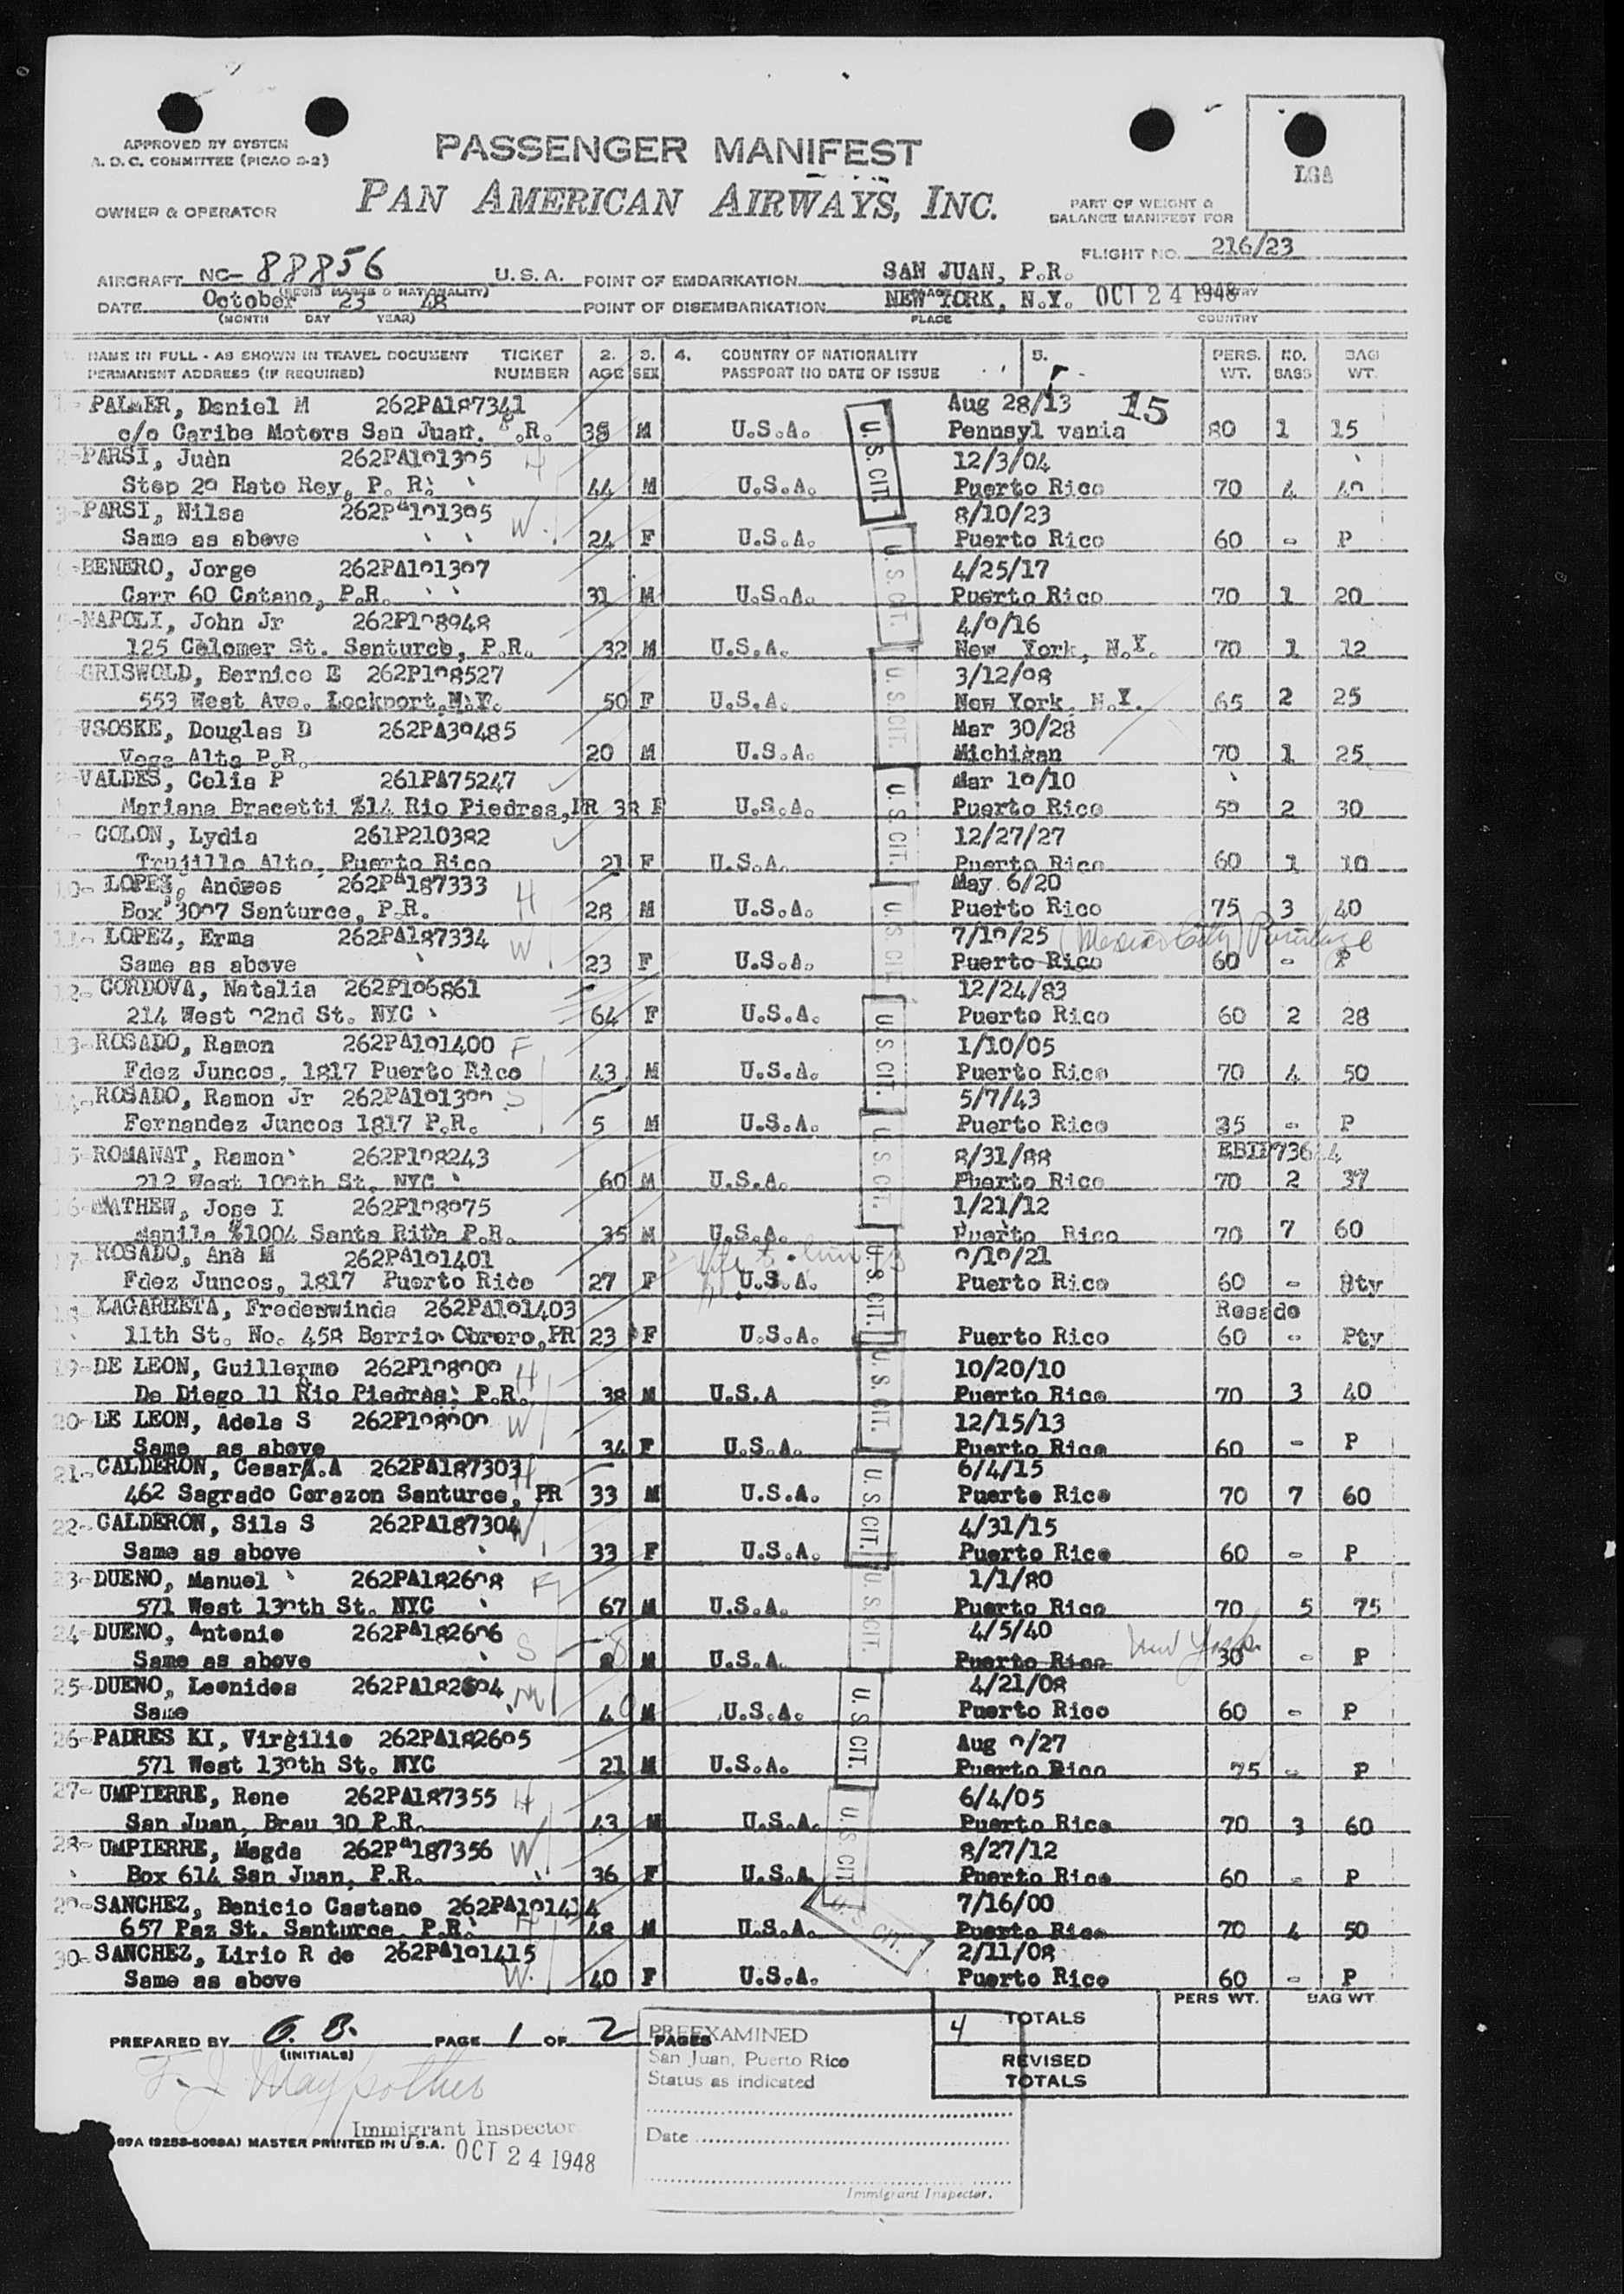 APPROVED BY SYSTEM
A. O. C. COMMITTEE (PICAO 2-2)
PASSENGER MANIFEST
LGA
OWNER & OPERATOR
PAN AMERICAN AIRWAYS, INC.
PART OF WEIGHT &
BALANCE MANIFEST FOR
FLIGHT NO. 216/23
AIRCRAFT NC- 88856 U.S.A. POINT OF EMBARKATION SAN JUAN, P.R.
DATE October 23 48 POINT OF DISEMBARKATION NEW YORK, N.Y. OCT 24 1948
(MONTH DAY YEAR) PLACE COUNTRY
NAME IN FULL - AS SHOWN IN TRAVEL DOCUMENT TICKET 2. 3. 4. COUNTRY OF NATIONALITY 5. PERS. NO. BAG
PERMANENT ADDRESS (IF REQUIRED) NUMBER AGE SEX PASSPORT NO DATE OF ISSUE WT. BAGS WT.
PALMER, Daniel M 262PA187341 Aug 28/13 15
c/o Caribe Motors San Juan. P.R. 35 M U.S.A. Pennsyl vania 80 1 15
PARSI, Juan 262PA191395 H 12/3/04
Stop 29 Hato Rey, P. R. 44 M U.S.A. Puerto Rico 70 4 40
PARSI, Nilsa 262PA191395 W 8/10/23
Same as above 24 F U.S.A. Puerto Rico 60 - P
BENERO, Jorge 262PA191397 4/25/17
Carr 60 Catano, P.R. 31 M U.S.A. Puerto Rico 70 1 20
NAPOLI, John Jr 262P198948 4/9/16
125 Colomer St. Santurce, P.R. 32 M U.S.A. New York, N.Y. 70 1 12
GRISWOLD, Bernice E 262P198527 3/12/98
553 West Ave. Lockport N.Y. 50 F U.S.A. New York, N.Y. 65 2 25
USOSKE, Douglas D 262PA39485 Mar 30/28
Vega Alta P.R. 20 M U.S.A. Michigan 70 1 25
VALDES, Celia P 261PA75247 Mar 19/10
Mariana Bracetti #14 Rio Piedras, PR 38 F U.S.A. Puerto Rico 59 2 30
COLON, Lydia 261P210382 12/27/27
Trujillo Alto, Puerto Rico 21 F U.S.A. Puerto Rico 60 1 10
10- LOPEZ, Andres 262PA187333 H May 6/20
Box 3097 Santurce, P.R. 28 M U.S.A. Puerto Rico 75 3 40
11- LOPEZ, Erma 262PA187334 W 7/19/25 (Mexico City)
Same as above 23 F U.S.A. Puerto Rico 60 - P
12- CORDOVA, Natalia 262P196861 12/24/83
214 West 92nd St. NYC 64 F U.S.A. Puerto Rico 60 2 28
13- ROSADO, Ramon 262PA191400 F 1/10/05
Fdez Juncos, 1817 Puerto Rico 43 M U.S.A. Puerto Rico 70 4 50
14- ROSADO, Ramon Jr 262PA191399 S 5/7/43
Fernandez Juncos 1817 P.R. 5 M U.S.A. Puerto Rico 35 - P
15- ROMANAT, Ramon 262P198243 8/31/88
212 West 109th St. NYC 60 M U.S.A. Puerto Rico 70 2 37
16- MATHEW, Jose I 262P198975 1/21/12
Manila #1004 Santa Rita P.R. 35 M U.S.A. Puerto Rico 70 7 60
17- ROSADO, Ana M 262PA191401 9/19/21
Fdez Juncos, 1817 Puerto Rico 27 F U.S.A. Puerto Rico 60 - Pty
18- LAGARRETA, Fredeswinda 262PA191403 Rosado
11th St. No. 458 Barrio Obrero, PR 23 F U.S.A. Puerto Rico 60 - Pty
19- DE LEON, Guillermo 262P198900 H 10/20/10
De Diego 11 Rio Piedras, P.R. 38 M U.S.A Puerto Rico 70 3 40
20- DE LEON, Adela S 262P198900 W 12/15/13
Same as above 34 F U.S.A. Puerto Rico 60 - P
21- CALDERON, Cesar A.A 262PA187303 H 6/4/15
462 Sagrado Corazon Santurce, PR 33 M U.S.A. Puerto Rico 70 7 60
22- CALDERON, Sila S 262PA187304 W 4/31/15
Same as above 33 F U.S.A. Puerto Rico 60 - P
23- DUENO, Manuel 262PA182608 F 1/1/80
571 West 139th St. NYC 67 M U.S.A. Puerto Rico 70 5 75
24- DUENO, Antonio 262PA182606 S 4/5/40 New York
Same as above 8 M U.S.A. Puerto Rico 30 - P
25- DUENO, Leonides 262PA182604 M 4/21/08
Same 40 M U.S.A. Puerto Rico 60 - P
26- PADRES KI, Virgilio 262PA182605 Aug 9/27
571 West 139th St. NYC 21 M U.S.A. Puerto Rico 75 - P
27- UMPIERRE, Rene 262PA187355 H 6/4/05
San Juan, Brau 30 P.R. 43 M U.S.A. Puerto Rico 70 3 60
28- UMPIERRE, Magda 262PA187356 W 8/27/12
Box 614 San Juan, P.R. 36 F U.S.A. Puerto Rico 60 - P
29- SANCHEZ, Benicio Castano 262PA191414 7/16/00
657 Paz St. Santurce, P.R. H 48 M U.S.A. Puerto Rico 70 4 50
30- SANCHEZ, Lirio R de 262PA191415 2/11/08
Same as above W. 40 F U.S.A. Puerto Rico 60 - P
U.S. CIT.
U.S. CIT.
U.S. CIT.
U.S. CIT.
U.S. CIT.
U.S. CIT.
U.S. CIT.
U.S. CIT.
U.S. CIT.
U.S. CIT.
U.S. CIT.
U.S. CIT.
U.S. CIT.
U.S. CIT.
PERS WT. BAG WT.
PREPARED BY O. B. PAGE 1 OF 2 PAGES 4 TOTALS
(INITIALS)
REVISED
TOTALS
PREEXAMINED
San Juan, Puerto Rico
Status as indicated
Date
Immigrant Inspector.
Immigrant Inspector
MASTER PRINTED IN U.S.A. OCT 24 1948